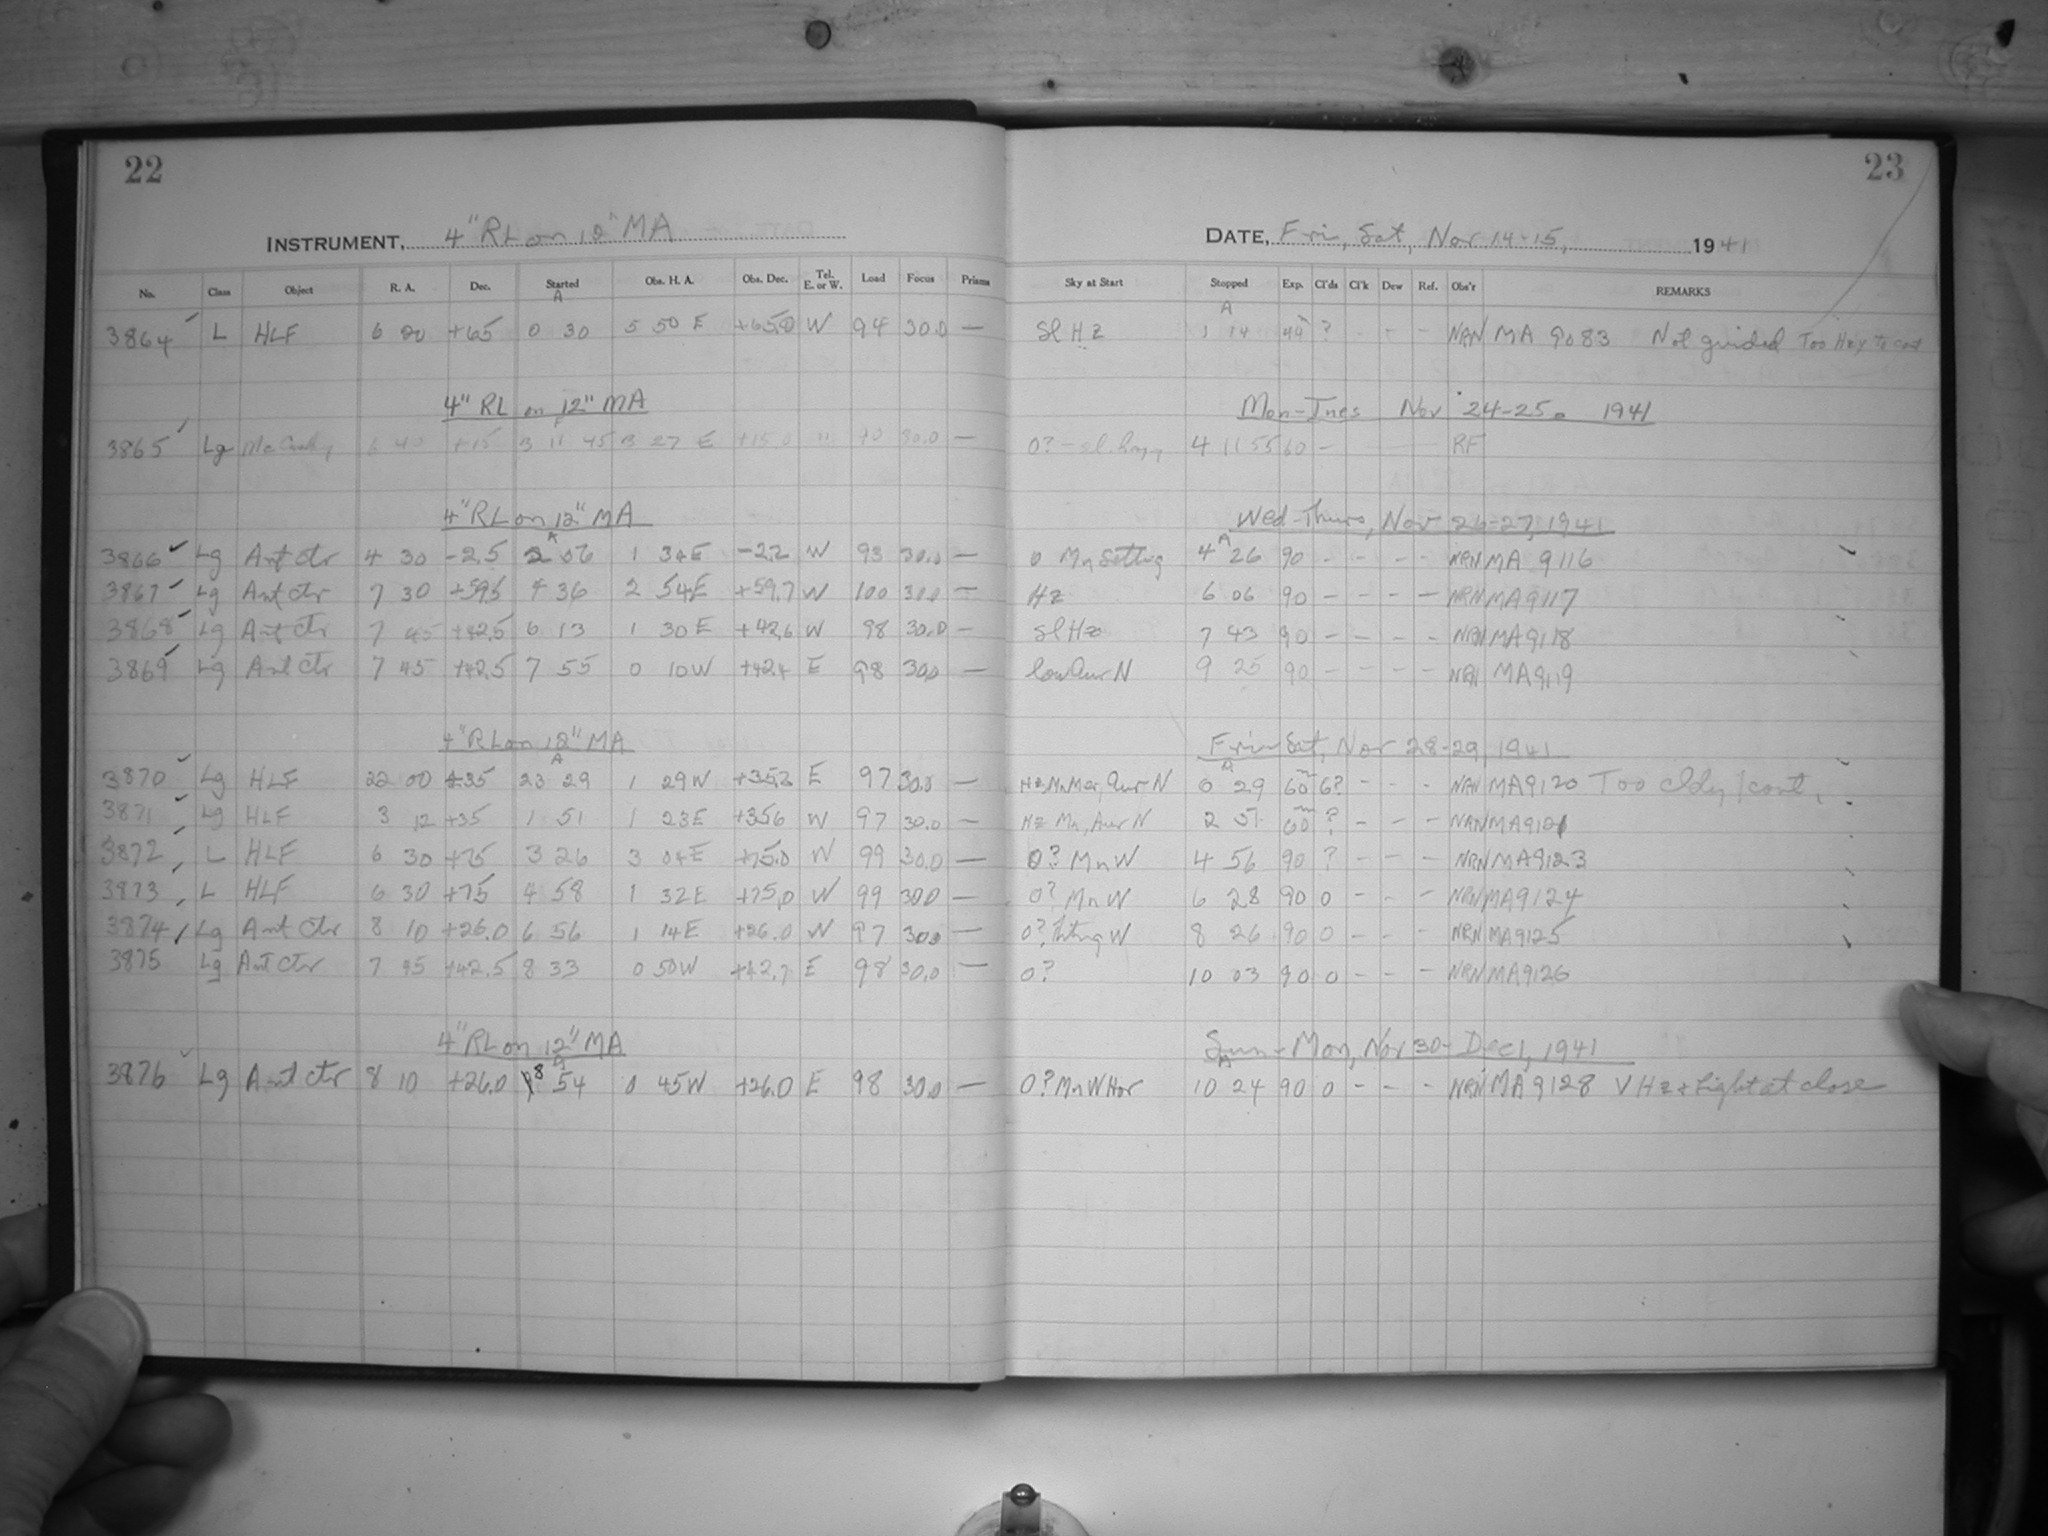 22
INSTRUMENT, 4" RL on 12" MA
No. Class Object R. A. Dec. Started Obs. H. A. Obs. Dec. Tel. E. or W. Load Focus Prisms
A
3864 L HLF 6 00 +65 0 30 5 50 E +65.0 W 94 30.0 —
4" RL on 12" MA
3865 Lg 6 40 +15 45 27 E +15.0 " 70 30.0 —
4" RL on 12" MA
A
3866 Lg Ant ctr 4 30 -2.5 2 56 1 34E -2.2 W 93 30.0 —
3867 Lg Ant ctr 7 30 +59.5 4 36 2 54E +59.7 W 100 30.0 —
3868 Lg Ant ctr 7 45 +42.5 6 13 1 30 E +42.6 W 98 30.0 —
3869 Lg Ant ctr 7 45 +42.5 7 55 0 10W +42.4 E 98 30.0 —
4" RL on 12" MA
A
3870 Lg HLF 22 00 +35 23 29 1 29W +35.2 E 97 30.0 —
3871 Lg HLF 3 12 +35 1 51 1 23E +35.6 W 97 30.0 —
3872 L HLF 6 30 +75 3 26 3 04E +75.0 W 99 30.0 —
3873 L HLF 6 30 +75 4 58 1 32E +75.0 W 99 30.0 —
3874 Lg Ant Ctr 8 10 +26.0 6 56 1 14E +26.0 W 97 30.0 —
3875 Lg Ant Ctr 7 45 +42.5 8 33 0 50W +42.7 E 98 30.0 —
4" RL on 12" MA
A
3876 Lg Ant ctr 8 10 +26.0 8 54 0 45W +26.0 E 98 30.0 —
23
DATE, Fri, Sat, Nov 14-15, 1941
Sky at Start Stopped Exp. Cl'ds Cl'k Dew Ref. Obs'r REMARKS
A
Sl Hz 1 14 44 ? - - - NRN MA 9083 Not guided Too Hzy to cont
Mon-Tues Nov 24-25. 1941
0? - sl. hazy 4 11 55 60 - RF
Wed-Thurs, Nov 26-27, 1941
A
0 Mn Setting 4 26 90 - - - - NRN MA 9116
Hz 6 06 90 - - - - NRN MA9117
Sl Hz 7 43 90 - - - - NRN MA9118
low Aur N 9 25 90 - - - - NRN MA9119
Fri-Sat, Nov 28-29, 1941
A
Hz, Mn Mer, Aur N 0 29 60 6? - - - NRN MA9120 Too cldy / cont.
Hz Mn, Aur N 2 51 60 ? - - - NRN MA9121
0? Mn W 4 56 90 ? - - - NRN MA9123
0? Mn W 6 28 90 0 - - - NRN MA9124
0? W 8 26 90 0 - - - NRN MA9125
0? 10 03 90 0 - - - NRN MA9126
Sun-Mon, Nov 30-Dec 1, 1941
A
0? Mn W Hor 10 24 90 0 - - - NRN MA9128 V Hz + Light at close